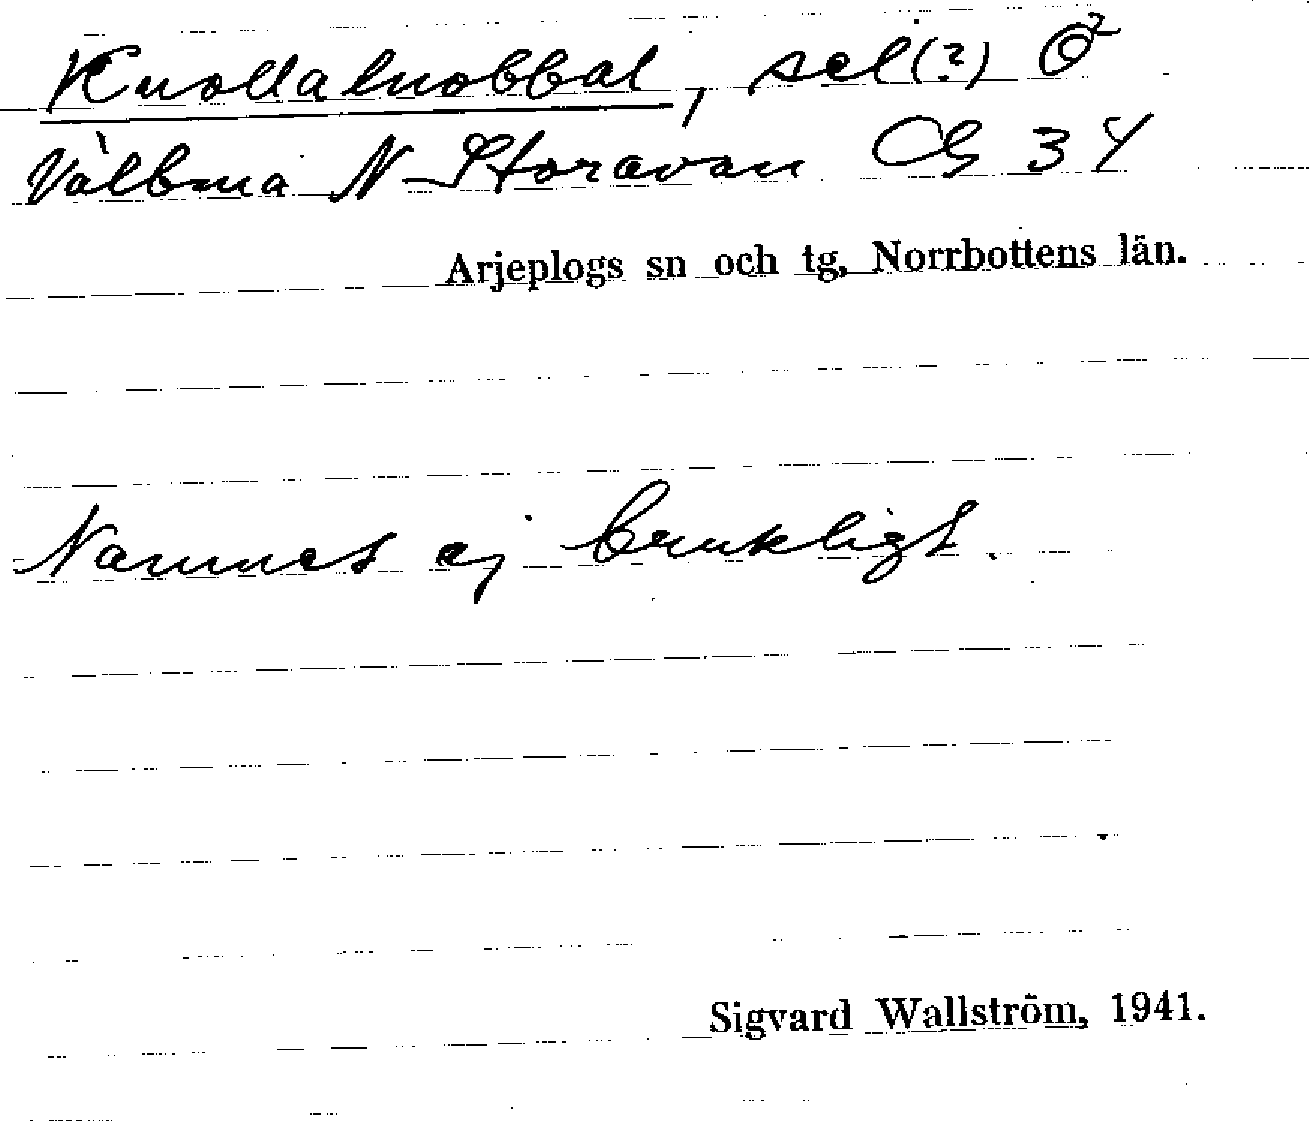 Kuollaluobbal, sel(?) Ö
Välbma N Storavan CG 34
Arjeplogs sn och tg, Norrbottens län.
Namnet ej brukligt.
Sigvard Wallström, 1941.